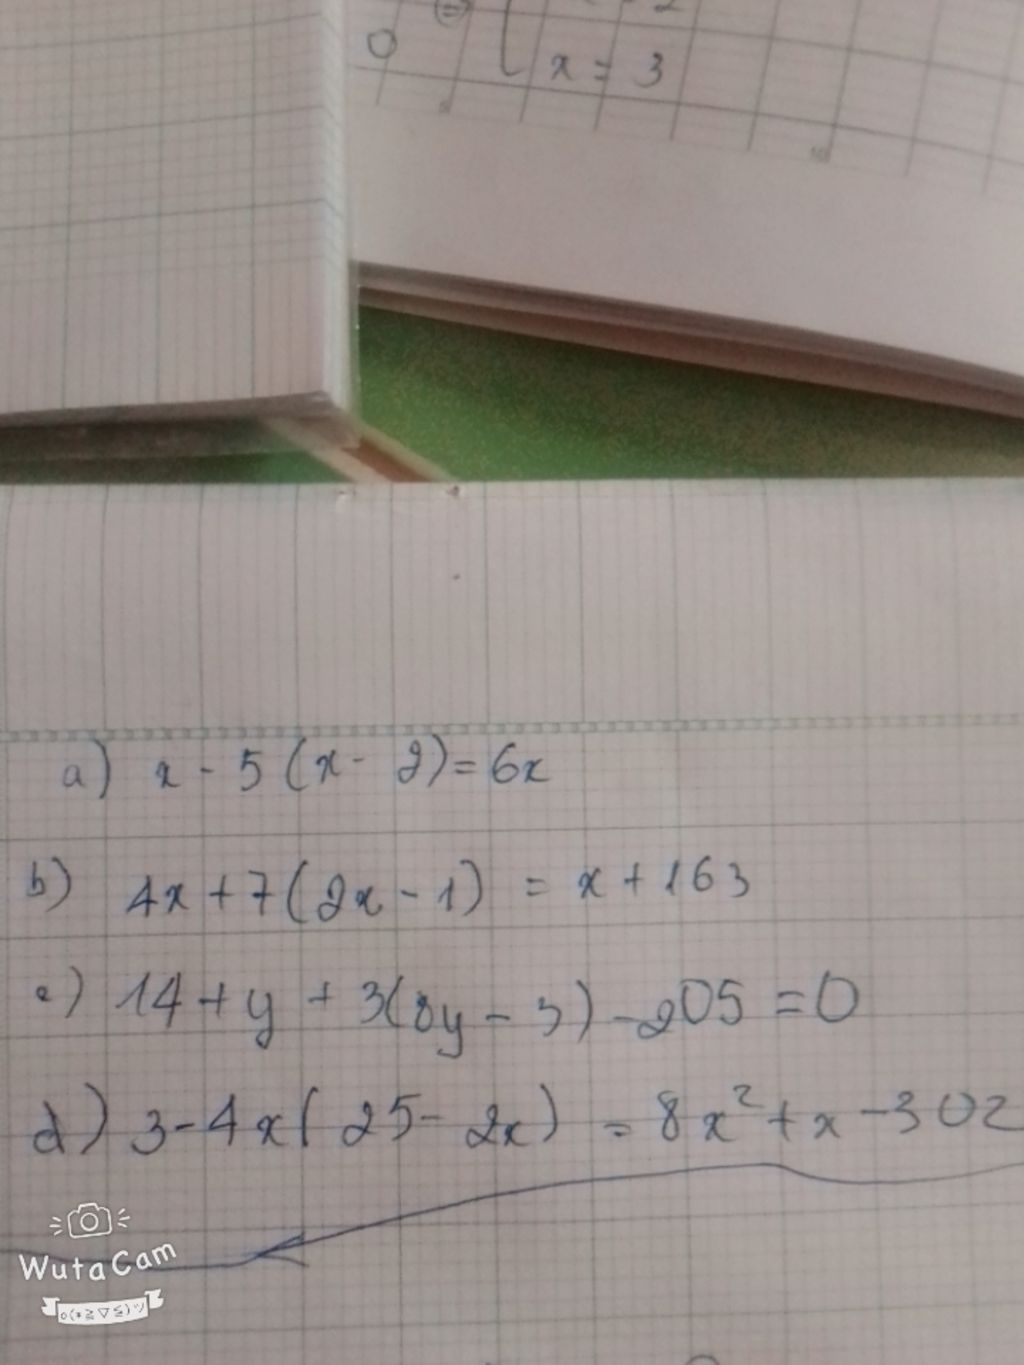 0
x = 3
a) x - 5 (x - 2) = 6x
b) 4x + 7(2x - 1) = x + 163
c) 14 + y + 3(8y - 3) - 205 = 0
d) 3 - 4x( 25 - 2x) = 8x² + x - 302
WutaCam
o(*≧▽≦)ツ